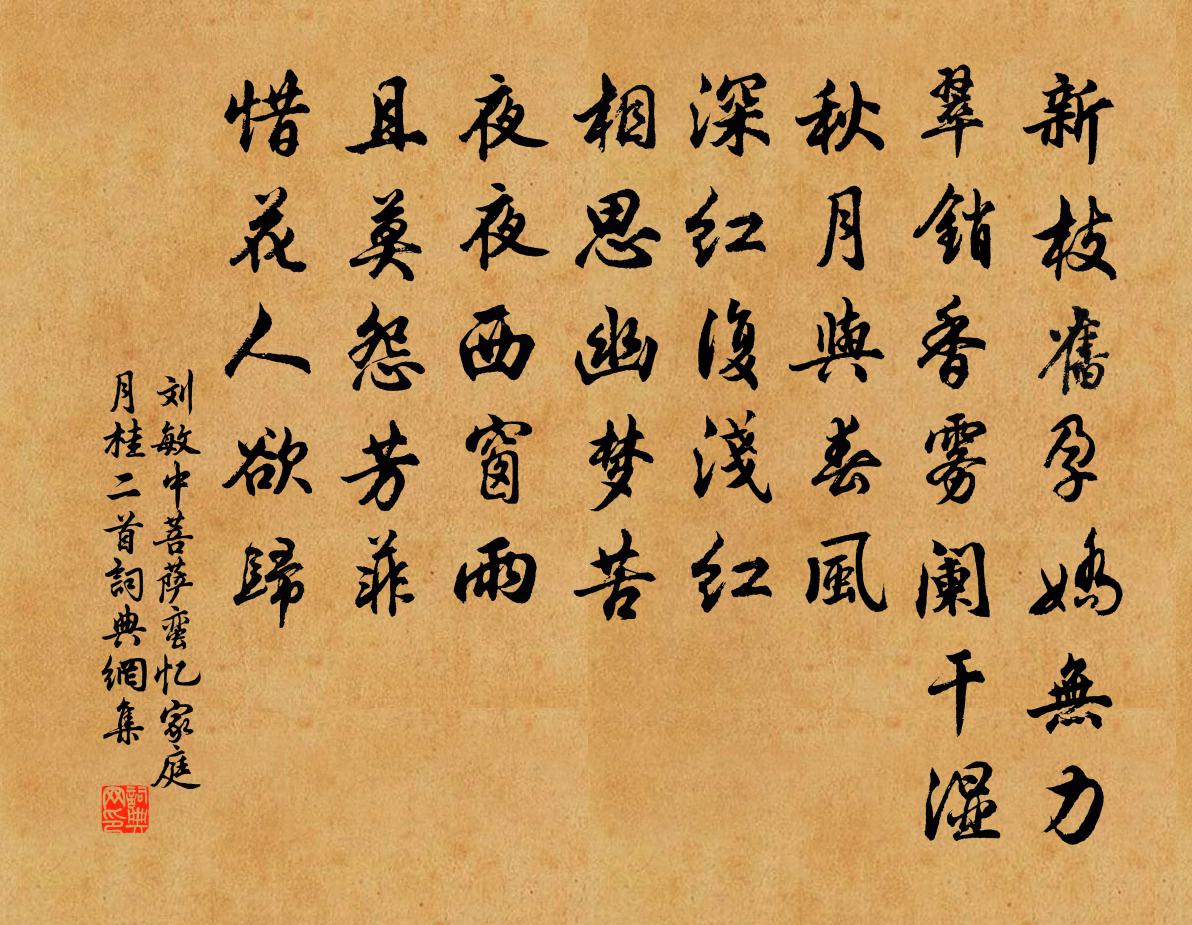 新枝舊孕嬌無力
翠銷香雾阑干湿
秋月與春風
深红復淺红
相思幽梦苦
夜夜西窗雨
且莫怨芳菲
惜花人欲歸
刘敏中菩萨蛮忆家庭
月桂二首詞典網集
詞典
网印